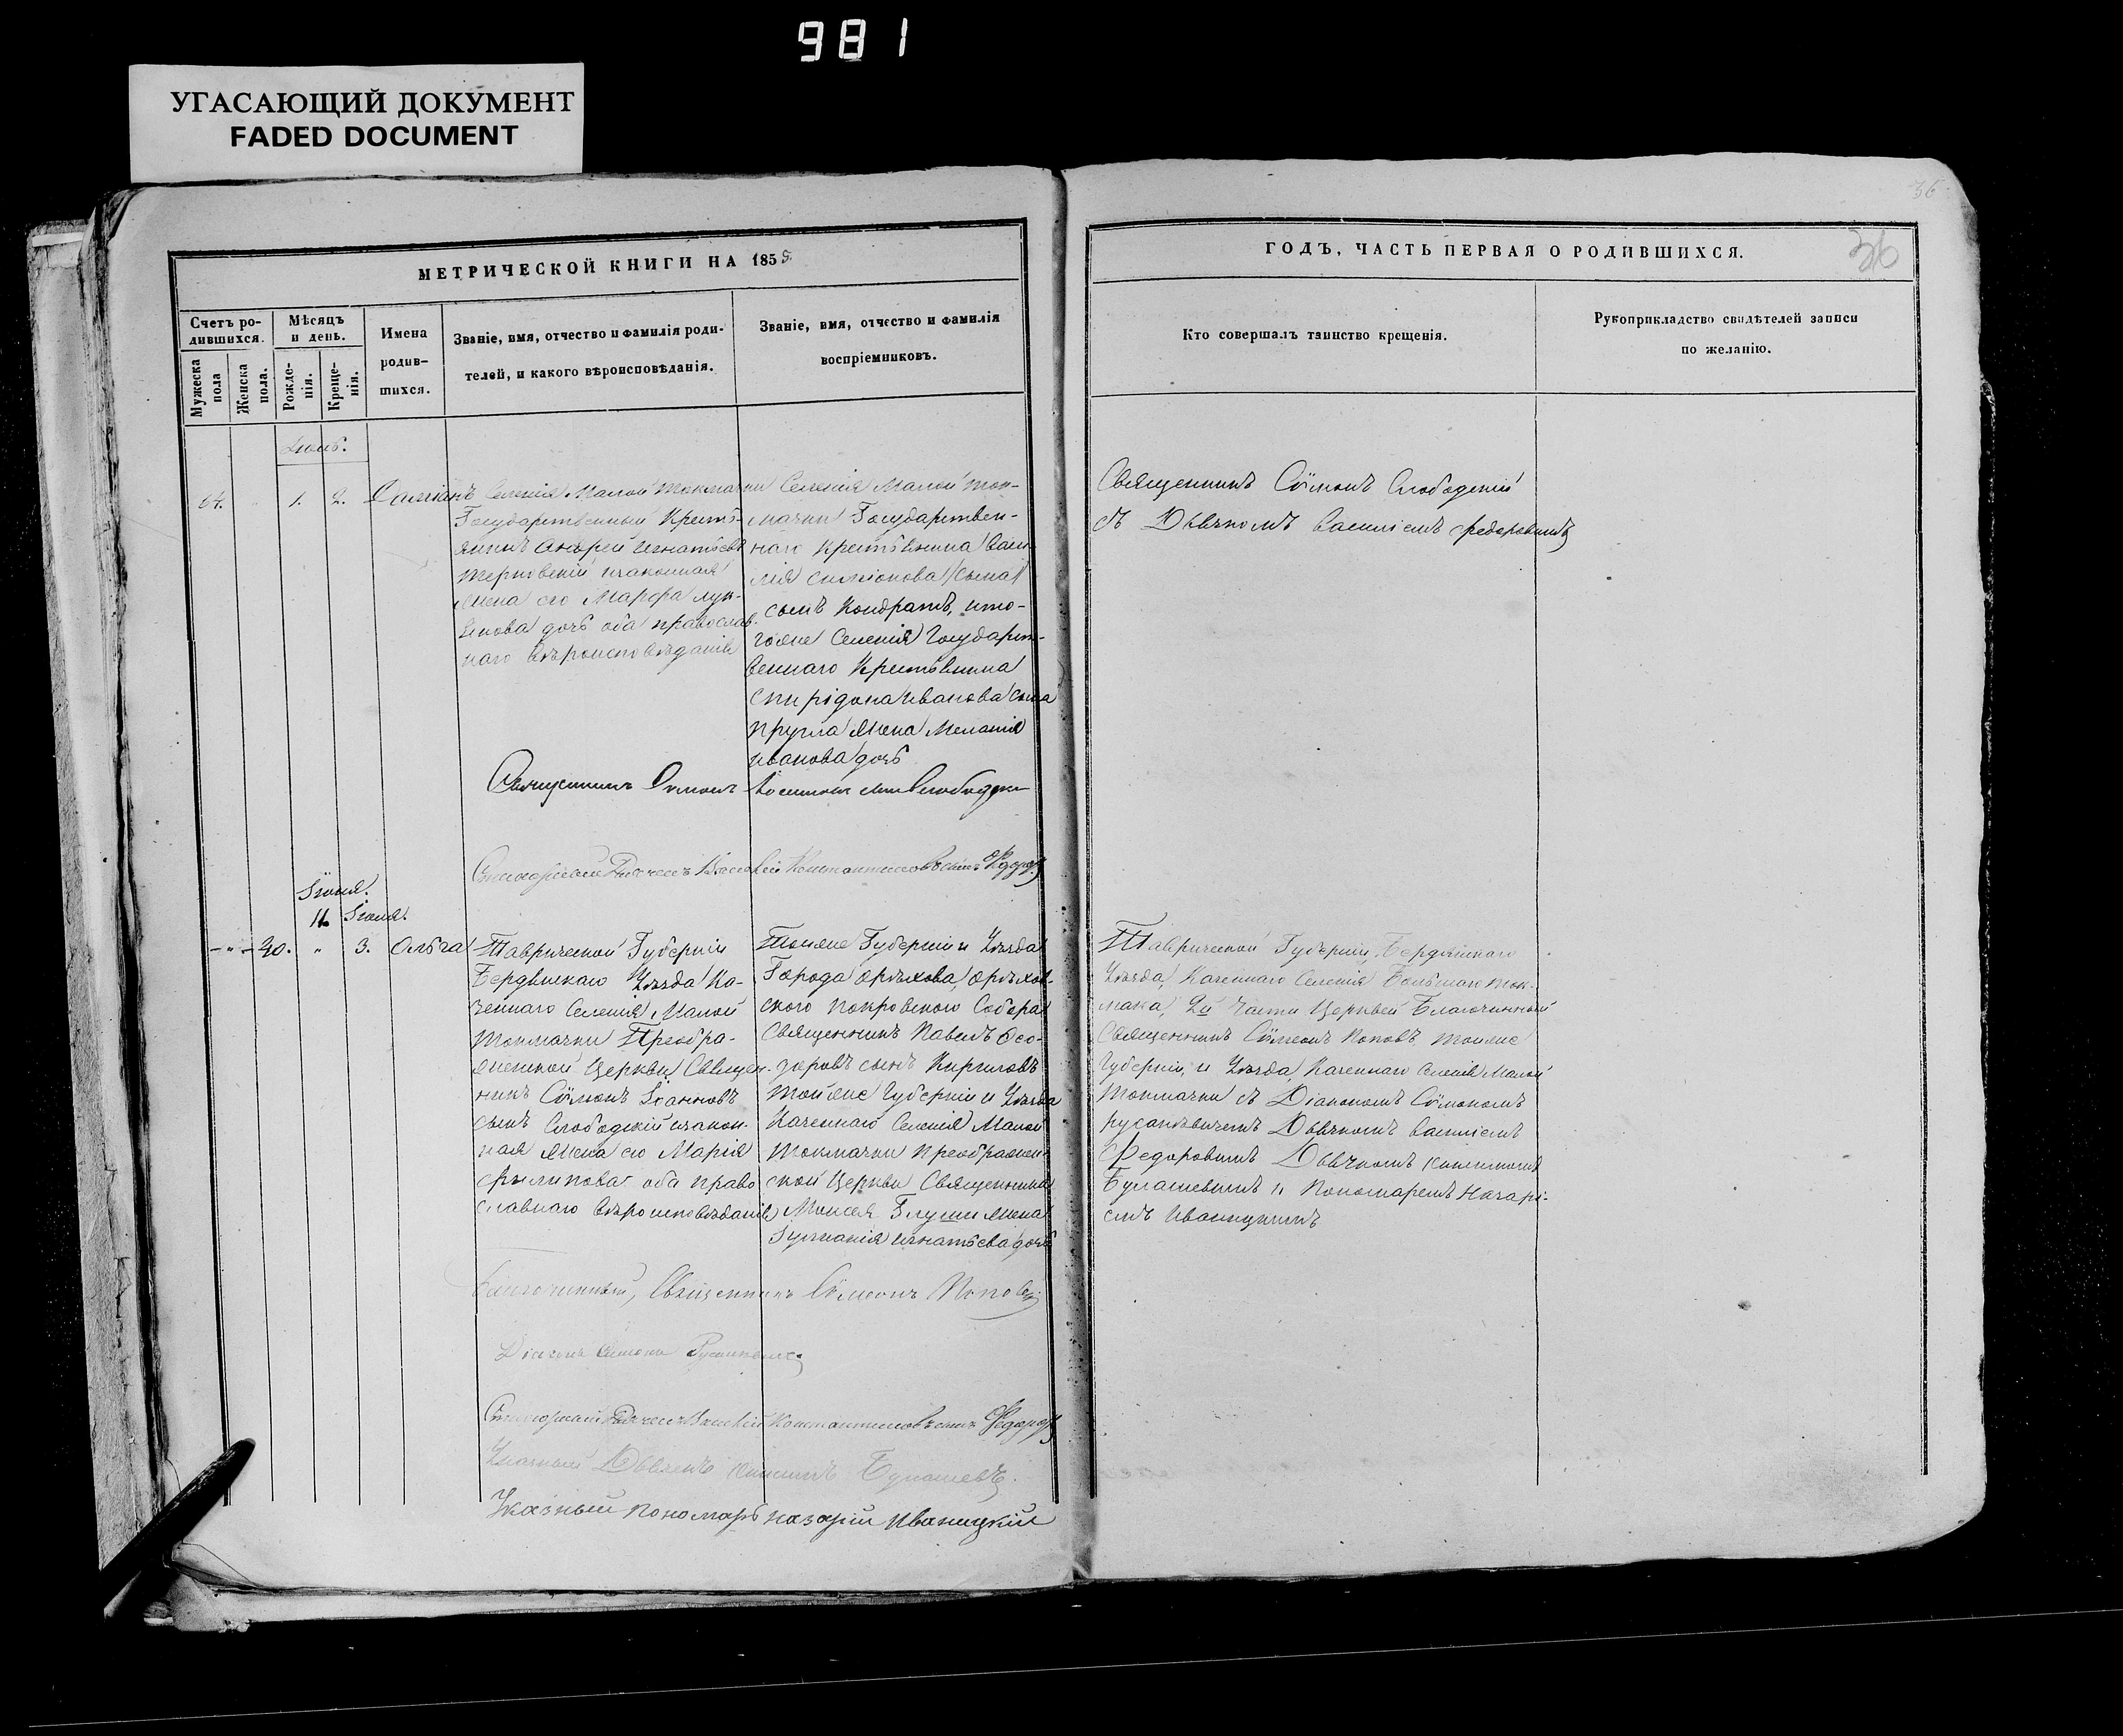 981
УГАСАЮЩИЙ ДОКУМЕНТ
FADED DOCUMENT
36
МЕТРИЧЕСКОЙ КНИГИ НА 1858
Счетъ ро-
дившихся.
Мужеска
пола
Женска
пола.
Мѣсяцъ
и день.
Рожде-
нія.
Креще-
нія.
Имена
родив-
шихся.
Званіе, имя, отчество и фамилія роди-
телей, и какого вѣроисповѣданія.
Званіе, имя, отчество и фамилія
воспріемниковъ.
Іюль.
64. 1. 2.
Селенія Малой Токмачки
Государственный Кресть-
янинъ Андрей Игнатьевъ
Терновскій и законная
жена его Марфа Лук-
янова дочь оба православ-
наго вѣроисповѣданія
Селенія Малой Ток-
мачки Государствен-
наго Крестьянина Васи-
лія Симіонова сына
сынъ Кондратъ, и то-
гоже Селенія Государст-
веннаго Крестьянина
Спиридона Иванова сына
жена Меланія
Иванова дочь
Священникъ Симонъ Слободскій
Стихарный Дьячекъ Василій Константиновъ сынъ Федоров
Іюня.
11. Іюля.
30. " 3. Ольга
Таврической Губерніи
Бердянскаго Уѣзда Ка-
зеннаго Селенія Малой
Токмачки Преобра-
женской Церкви Священ-
никъ Сүмонъ Іоанновъ
сынъ Слободскій и закон-
ная жена его Марія
Филипова оба право
славнаго вѣроисповѣданія
Тойже Губерніи и Уѣзда
Города Орѣхова, Орѣхов-
ского Покровского Собора
Священникъ Павелъ Ѳео-
доровъ сынъ Кириловъ
Тойже Губерніи и Уѣзда
Казеннаго Селенія Малой
Токмачки Преображен-
ской Церкви Священника
Моисея Глуши жена
Іуліанія Игнатьева дочь
Благочинный, Священникъ Сүмеонъ Поповъ
Діаконъ Симонъ
Стихарный Дьячекъ Василій Константиновъ сынъ Федоров
Указный Дьячекъ Булашевъ.
Указный Пономарь Назарій Иваницкій
36
ГОДЪ, ЧАСТЬ ПЕРВАЯ О РОДИВШИХСЯ.
Кто совершалъ таинство крещенія.
Рукоприкладство свидѣтелей записи
по желанію.
Священникъ Сүмонъ Слободскій
съ Дьячкомъ Василіемъ Федоровымъ
Таврической Губерніи, Бердянскаго
Уѣзда, Казеннаго Селенія Большаго Ток-
мака, 2й Части Церквей Благочинный
Священникъ Сүмеонъ Поповъ тойже
Губерніи, и Уѣзда, Казеннаго Селенія Малой
Токмачки съ Діакономъ Сүмономъ
Дьячкомъ Василіемъ
Федоровымъ Дьячкомъ
Булашевымъ и Пономаремъ Назарі-
емъ Иваницкимъ